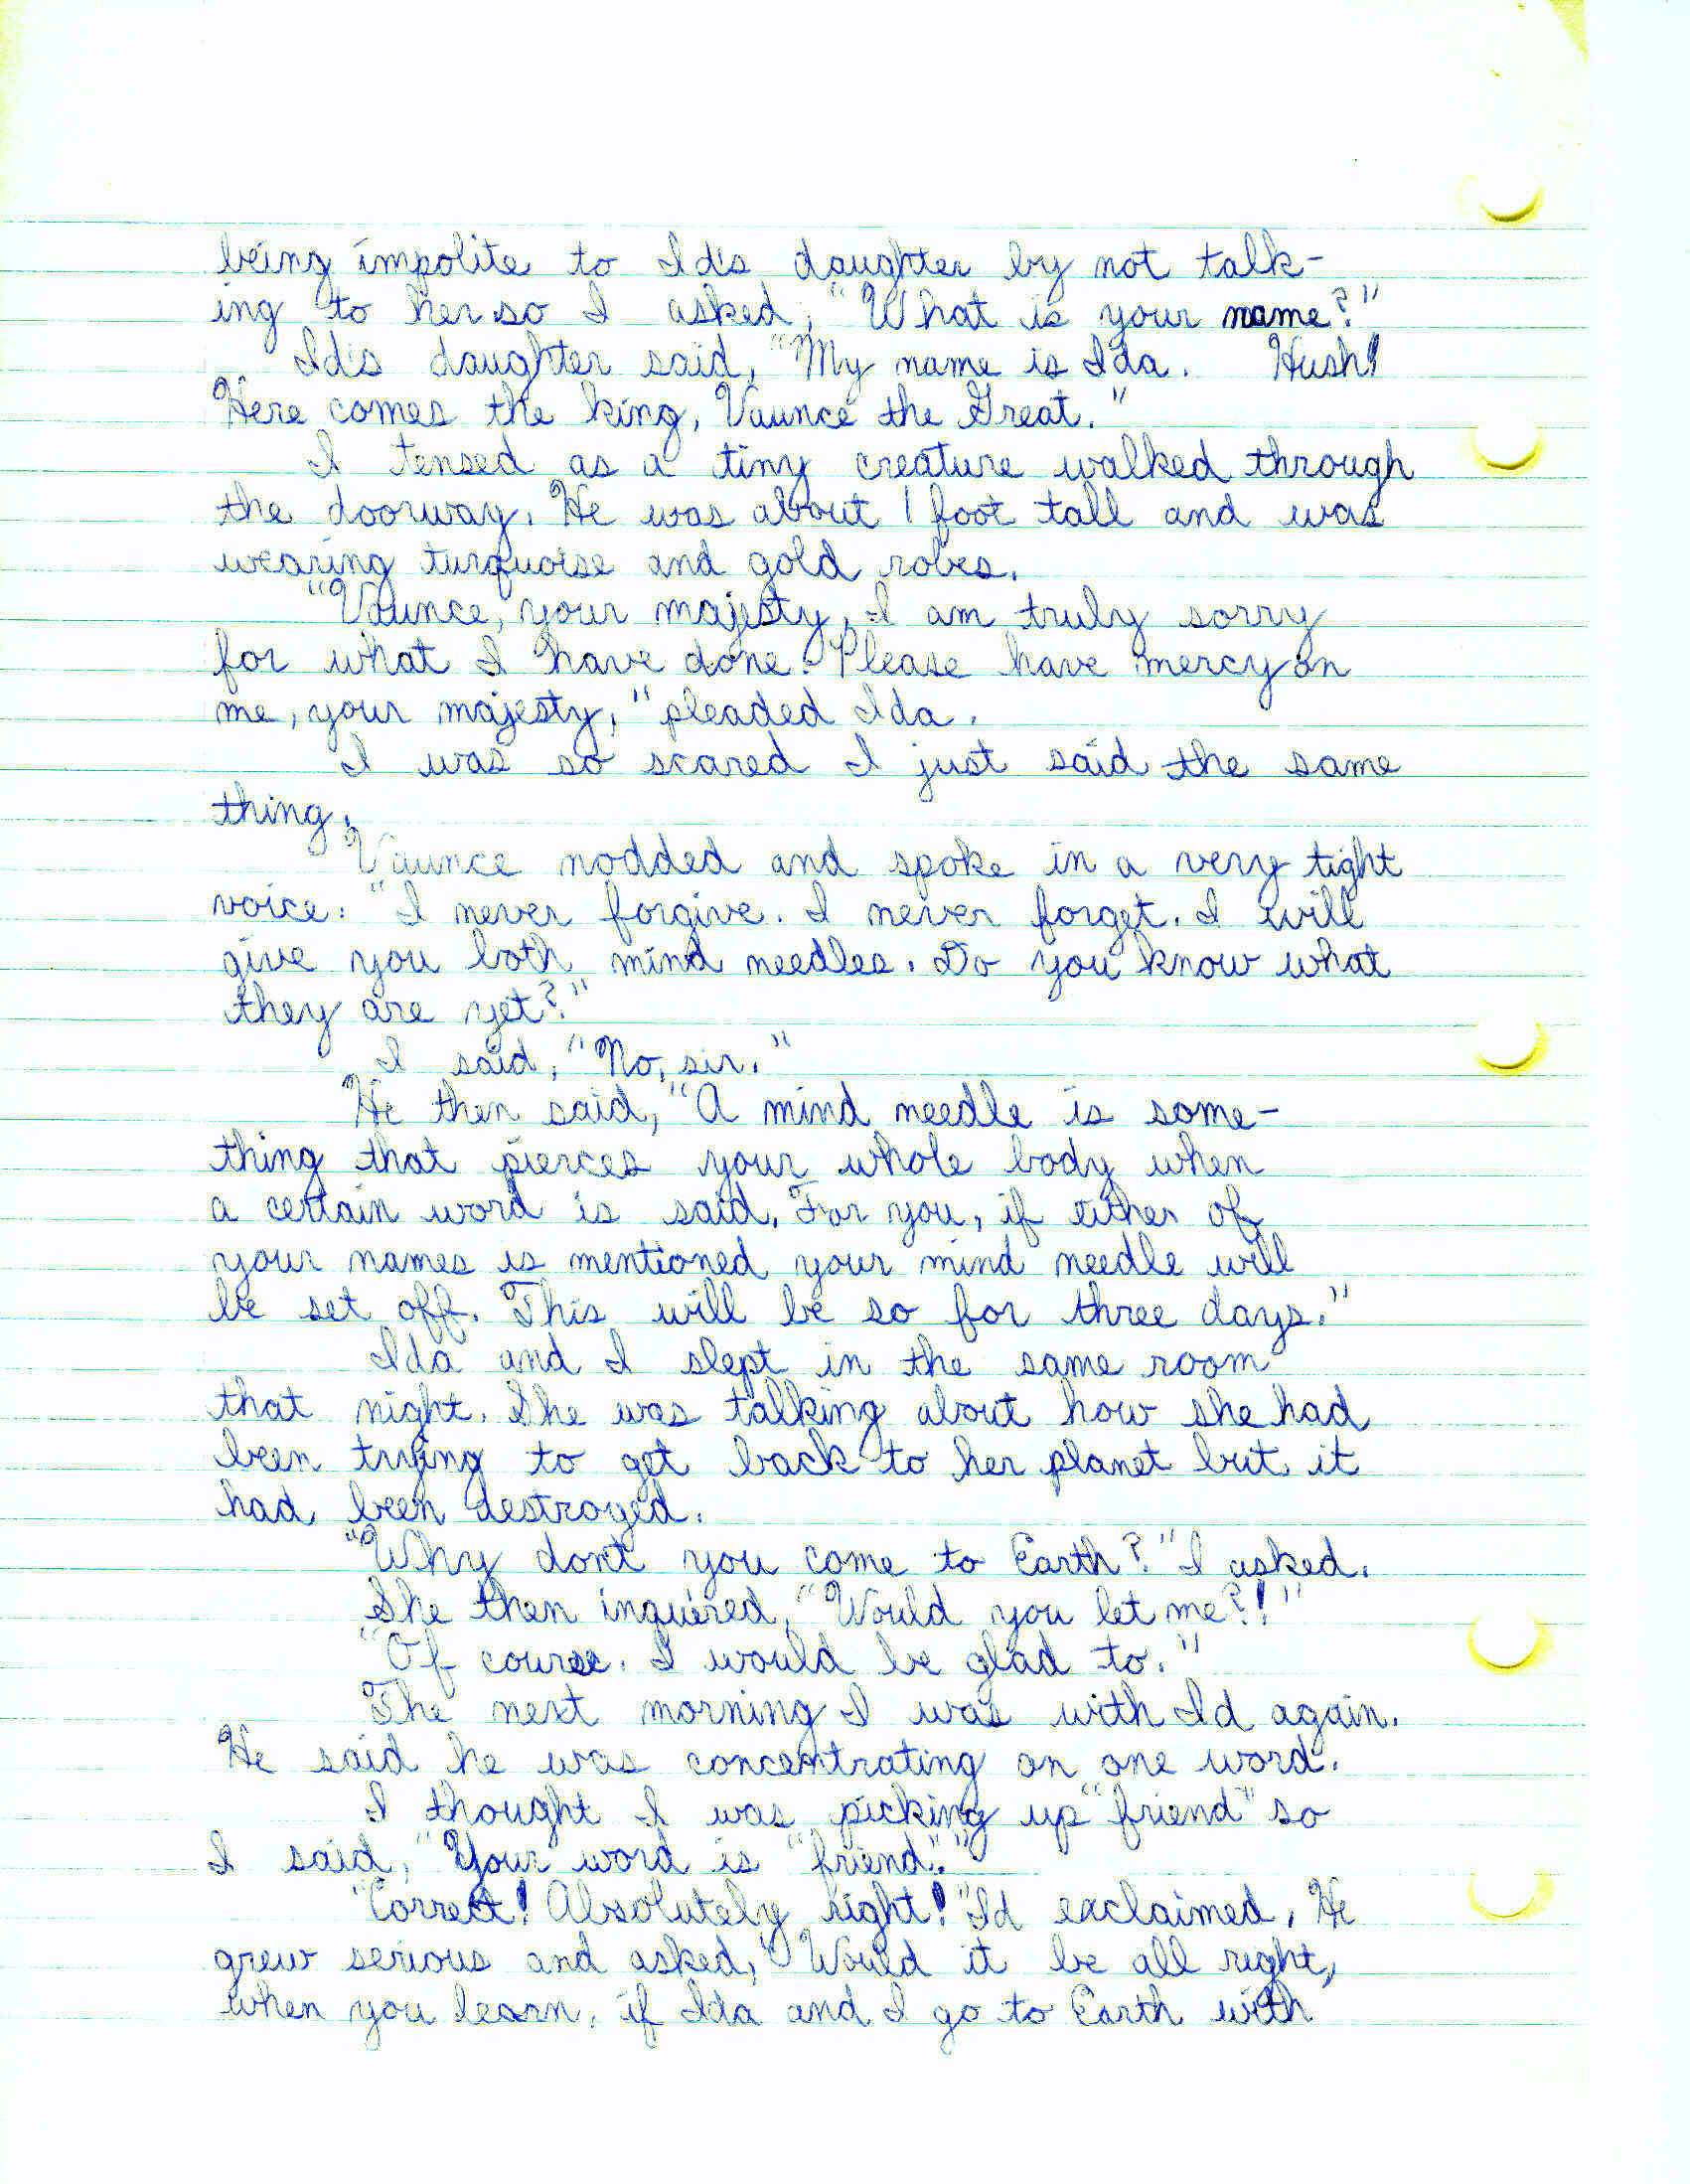 being impolite to Id's daughter by not talk-
ing to her so I asked, "What is your name?"
Id's daughter said, "My name is Ida. Hush!
Here comes the king, Vaunce the Great."
I tensed as a tiny creature walked through
the doorway. He was about 1 foot tall and was
wearing turquoise and gold robes.
"Vaunce, your majesty, I am truly sorry
for what I have done. Please have mercy on
me, your majesty," pleaded Ida.
I was so scared I just said the same
thing.
Vaunce nodded and spoke in a very tight
voice: "I never forgive. I never forget. I will
give you both mind needles. Do you know what
they are yet?"
I said, "No, sir."
He then said, "A mind needle is some-
thing that pierces your whole body when
a certain word is said. For you, if either of
your names is mentioned your mind needle will
be set off. This will be so for three days."
Ida and I slept in the same room
that night. She was talking about how she had
been trying to get back to her planet but it
had been destroyed.
"Why don't you come to Earth?" I asked.
She then inquired, "Would you let me?!"
"Of course. I would be glad to."
The next morning I was with Id again.
He said he was concentrating on one word.
I thought I was picking up "friend" so
I said, "Your word is "friend"."
"Correct! Absolutely right!" Id exclaimed. He
grew serious and asked, "Would it be all right,
when you learn, if Ida and I go to Earth with